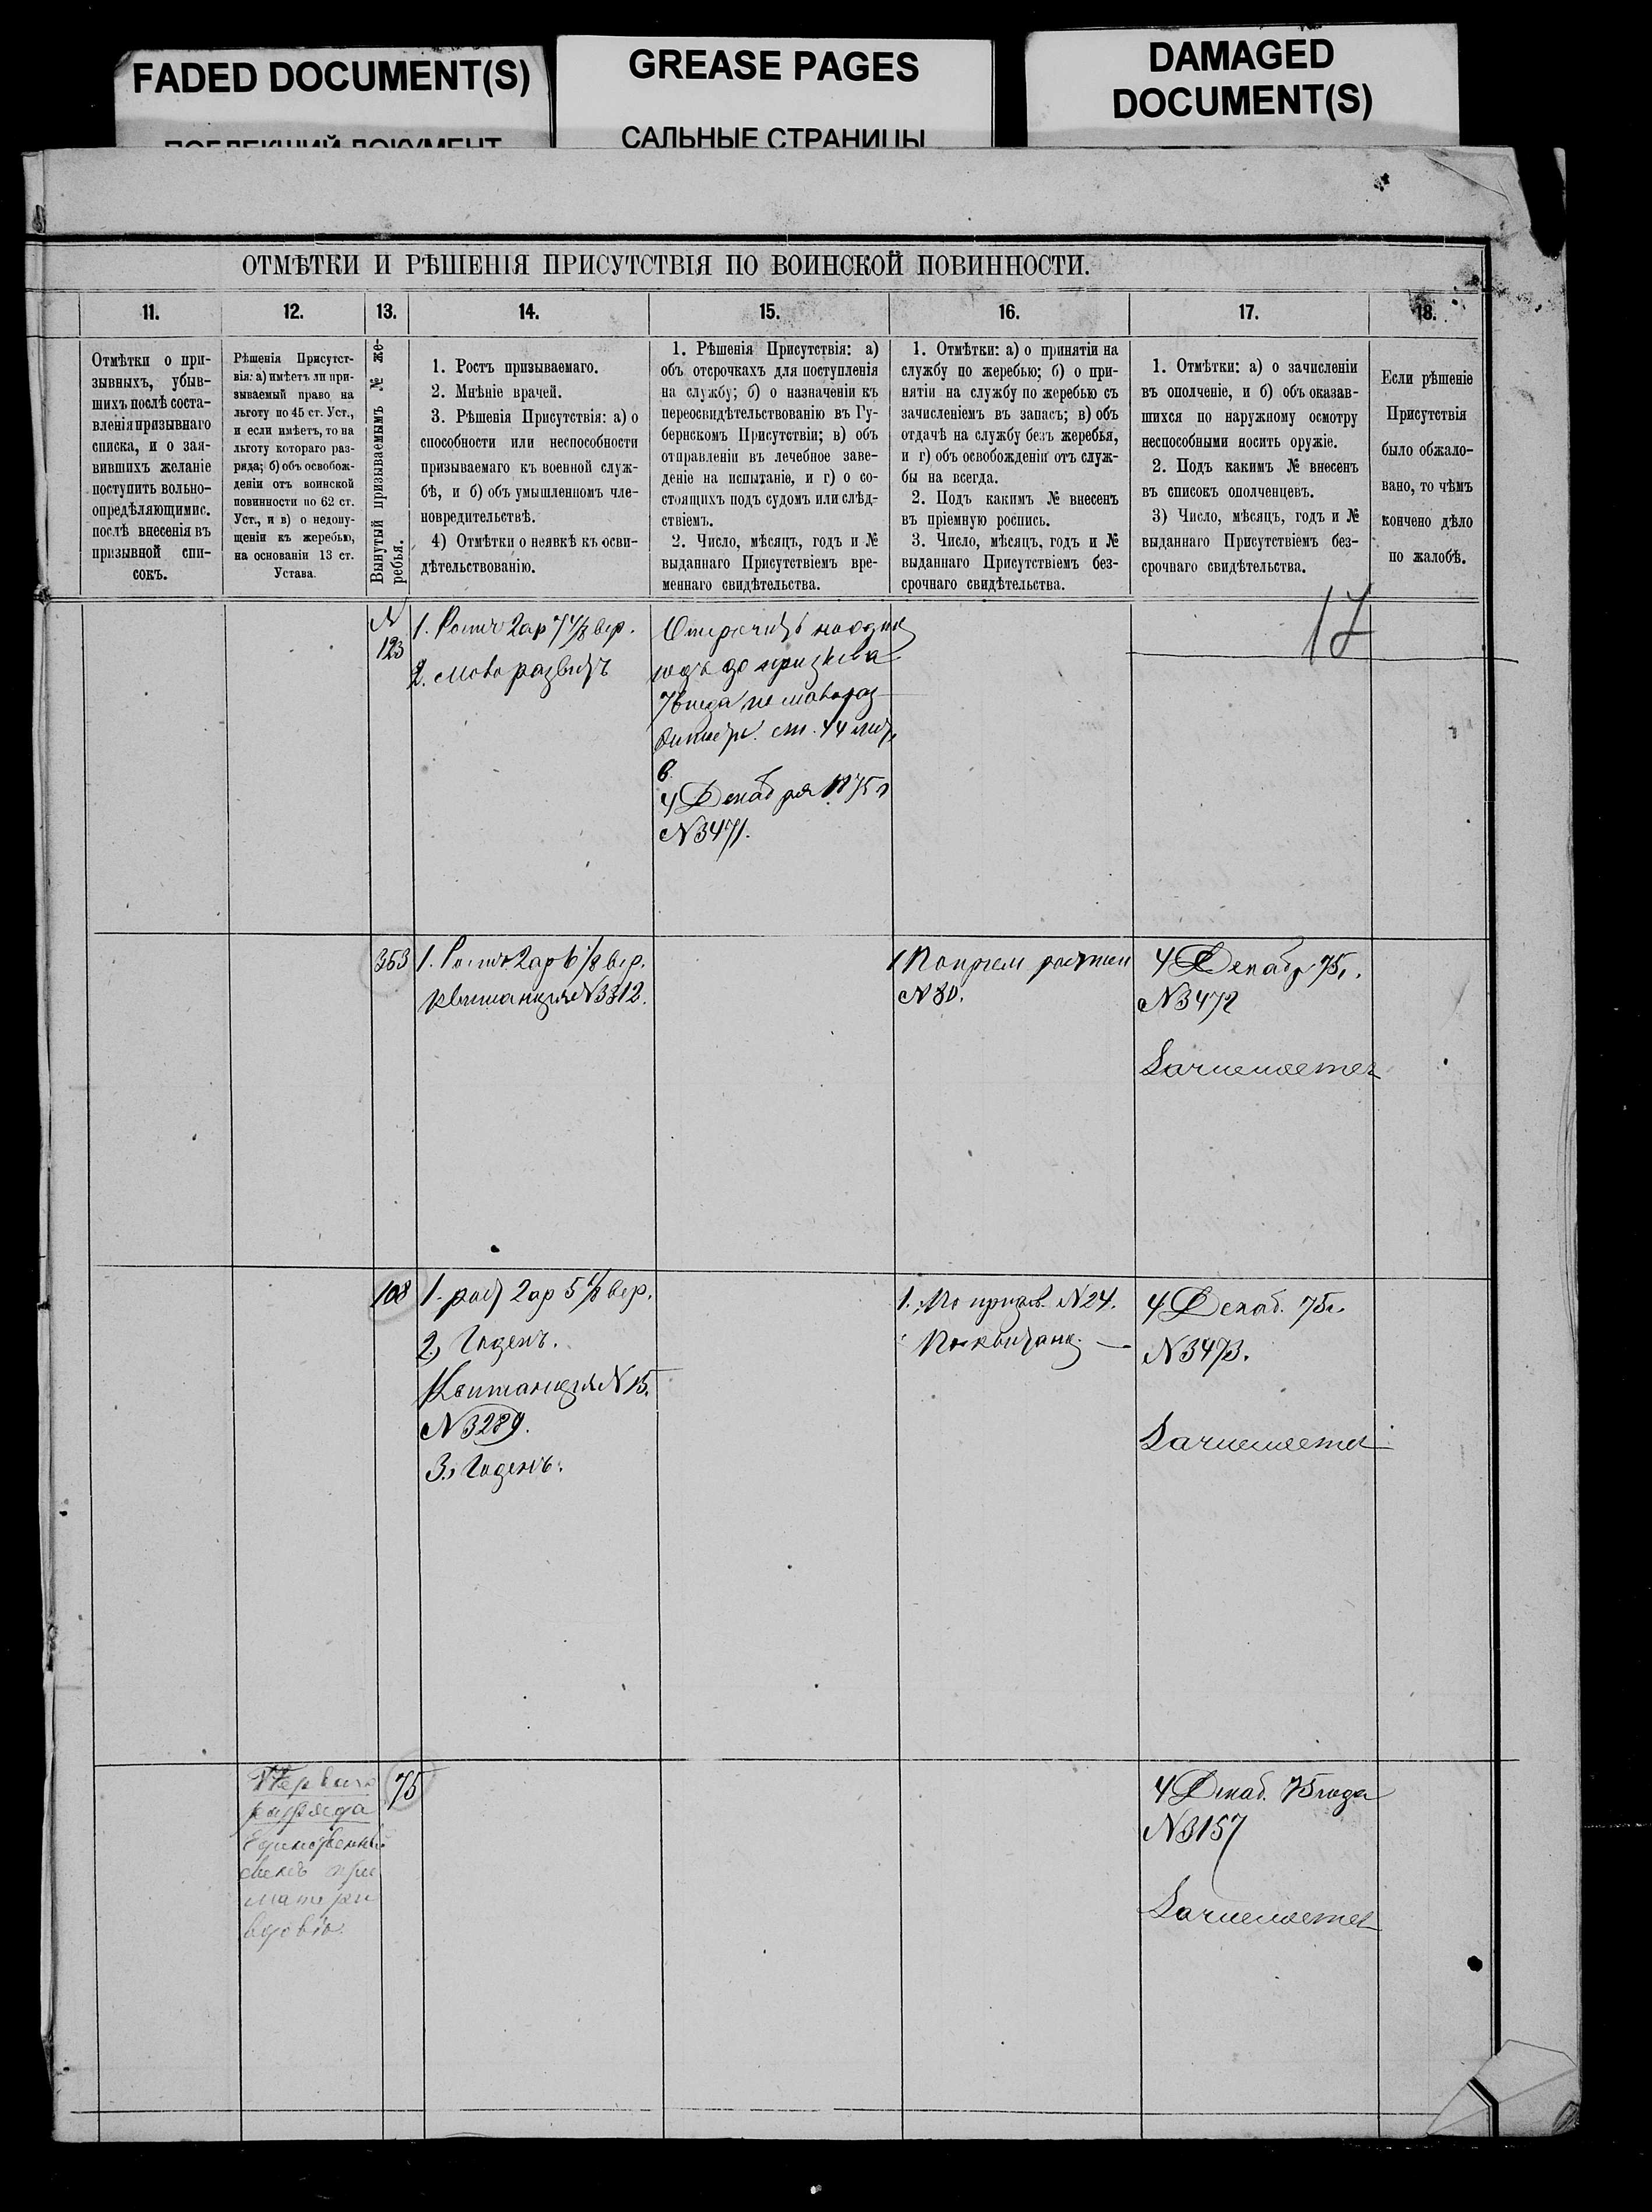 FADED DOCUMENT(S)
GREASE PAGES
САЛЬНЫЕ СТРАНИЦЫ
DAMAGED
DOCUMENT(S)
ОТМѢТКИ И РѢШЕНІЯ ПРИСУТСТВІЯ ПО ВОИНСКОЙ ПОВИННОСТИ.
11.
12.
13.
14.
15.
16.
17.
18.
Отмѣтки о при-
зывныхъ, убыв-
шихъ послѣ соста-
вленія призывнаго
списка, и о зая-
вившихъ желаніе
поступить вольно-
опредѣляющимис.
послѣ внесенія въ
призывной спи-
сокъ.
Рѣшенія Присутст-
вія: а) имѣетъ ли при-
зываемый право на
льготу по 45 ст. Уст.,
и если имѣетъ, то на
льготу котораго раз-
ряда; б) объ освобож-
деніи отъ воинской
повинности по 62 ст.
Уст., и в) о недопу-
щеніи къ жеребью,
на основаніи 13 ст.
Устава.
Вынутый призываемымъ № же-
ребья.
1. Ростъ призываемаго.
2. Мнѣніе врачей.
3. Рѣшенія Присутствія: а) о
способности или неспособности
призываемаго къ военной служ-
бѣ, и б) объ умышленномъ чле-
новредительствѣ.
4) Отмѣтки о неявкѣ къ осви-
дѣтельствованію.
1. Рѣшенія Присутствія: а)
объ отсрочкахъ для поступленія
на службу; б) о назначеніи къ
переосвидѣтельствованію въ Гу-
бернскомъ Присутствіи; в) объ
отправленіи въ лечебное заве-
деніе на испытаніе, и г) о со-
стоящихъ подъ судомъ или слѣд-
ствіемъ.
2. Число, мѣсяцъ, годъ и №
выданнаго Присутствіемъ вре-
меннаго свидѣтельства.
1. Отмѣтки: а) о принятіи на
службу по жеребью; б) о при-
нятіи на службу по жеребью съ
зачисленіемъ въ запасъ; в) объ
отдачѣ на службу безъ жеребья,
и г) объ освобожденіи отъ служ-
бы на всегда.
2. Подъ какимъ № внесенъ
въ пріемную роспись.
3. Число, мѣсяцъ, годъ и №
выданнаго Присутствіемъ без-
срочнаго свидѣтельства.
1. Отмѣтки: а) о зачисленіи
въ ополченіе, и б) объ оказав-
шихся по наружному осмотру
неспособными носить оружіе.
2. Подъ какимъ № внесенъ
въ списокъ ополченцевъ.
3) Число, мѣсяцъ, годъ и №
выданнаго Присутствіемъ без-
срочнаго свидѣтельства.
Если рѣшеніе
Присутствія
было обжало-
вано, то чѣмъ
кончено дѣло
по жалобѣ.
17
N
123
1. Ростъ 2 ар 7 4/8 вер.
2. мало развитъ
Отсрочить на один
годъ до призыва
76 года по мало раз
витію ст. 44 лит.
в
4 Декабря 1875 г
N 3471.
353
1. Ростъ 2 ар 6 1/8 вер.
квитанція N 3312.
1 По прием росписи
N 80.
4 Декабр 75 г.
N 3472
108
1. рост 2 ар 5 1/8 вер.
2, Годенъ.
Квитанція N 15.
N 3289.
3., Годенъ.
1. По призыв. N 24.
По квитанц. —
4 Декаб. 75 г.
N 3473.
Перваго
разряда
Единственный
сынъ при
матери
вдовѣ.
75
4 Декаб. 75 года
N 3157